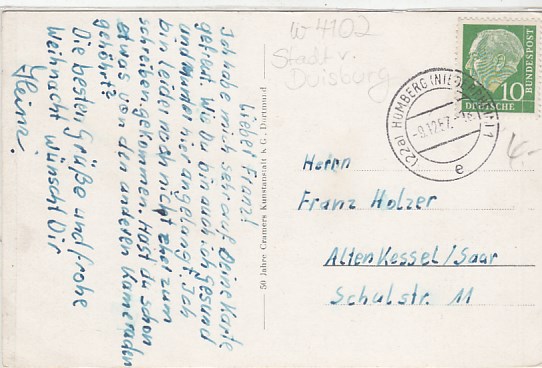 Lieber Franz!
Ich habe mich sehr auf Deine Karte
gefreut. Wie Du bin auch ich gesund
und munter hier angelangt. Ich
bin leider noch nicht eher zum
schreiben gekommen. Hast du schon
etwas von den anderen Kameraden
gehört?
Die besten Grüße und frohe
Weihnacht wünscht Dir
Heinz.
50 Jahre Cramers Kunstanstalt K.G., Dortmund
W 4102
Stadt v.
Duisburg
DEUTSCHE
BUNDESPOST
10
(22a) HOMBERG (NIEDERRHEIN) 1
-9.12.57.
e
4,-
Herrn
Franz Holzer
Altenkessel/Saar
Schulstr. 11